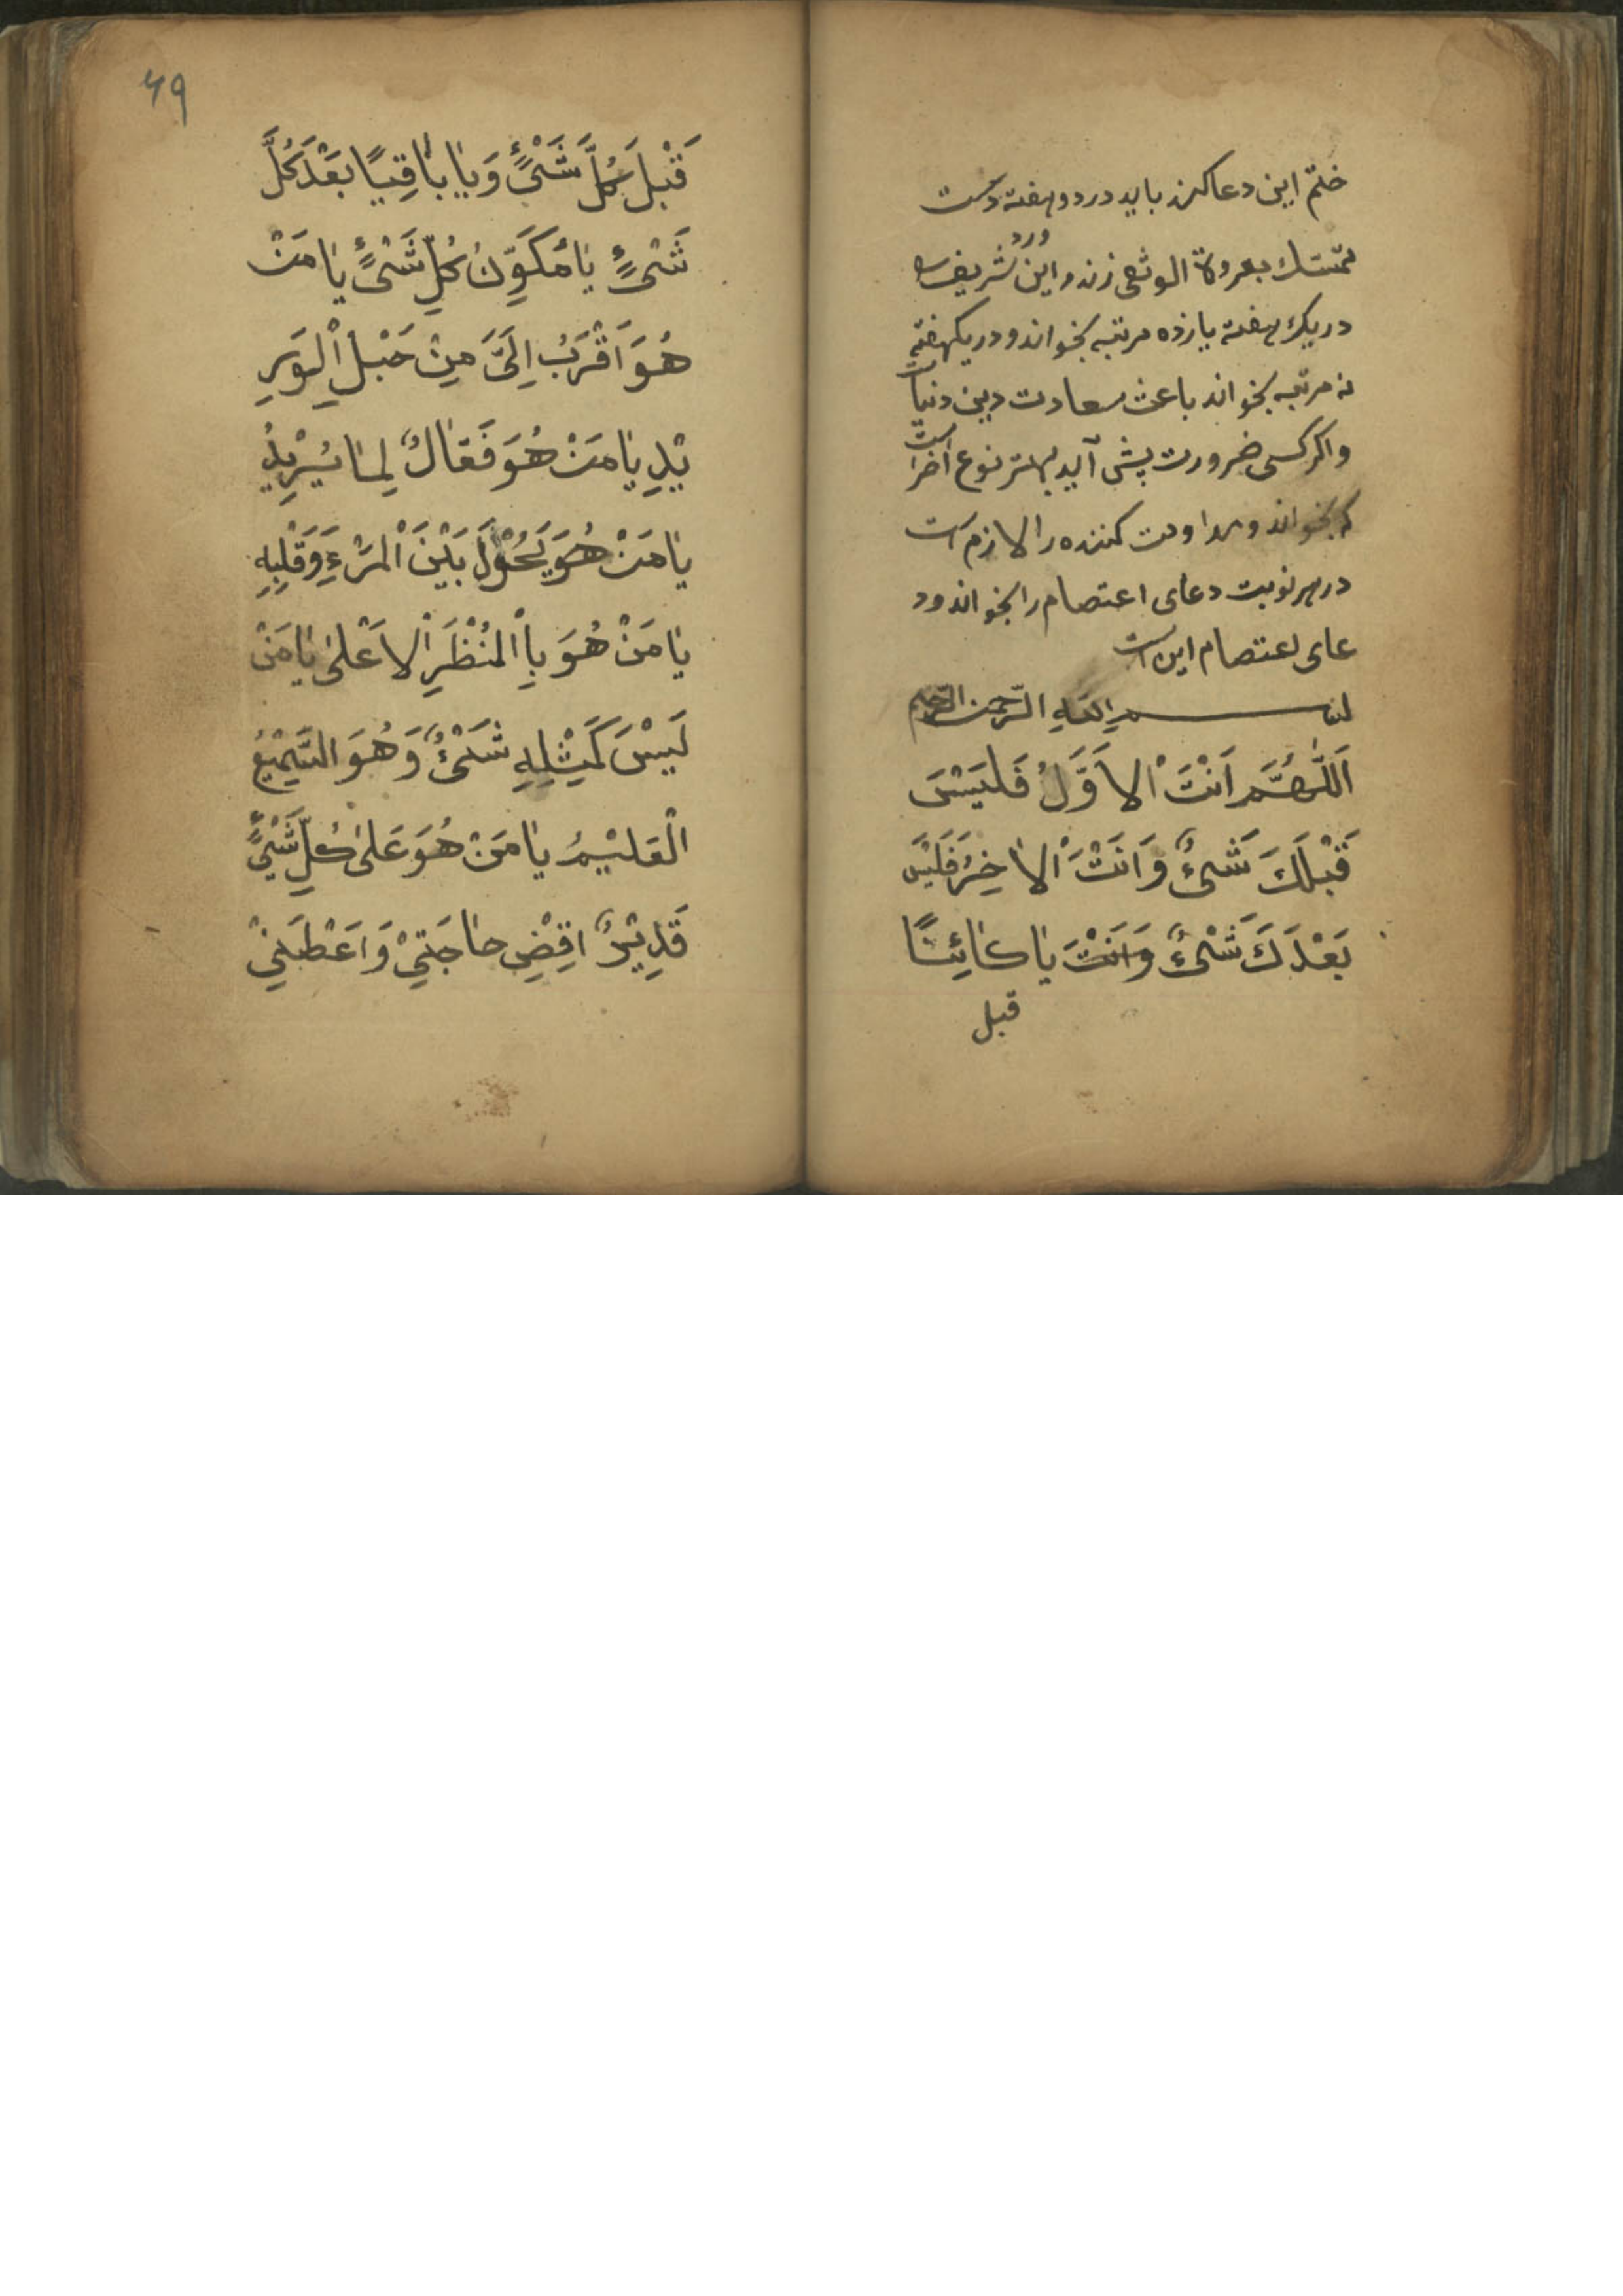 ختم این دعا کند باید در دو هفته دست
تمسک بعروة الوثقی زند و این ورد شریف را
در یک هفته یازده مرتبه بخواند و در یکهفته
نه مرتبه بخواند باعث سعادت دین دنیا است
و اکر کسی ضرورت پیش آید بهتر نوع آخر است
که بخواند و مداومت کننده را لازم است
در هر نوبت دعای اعتصام را بخواند و د
عای اعتصام این است
بسم الله الرحمن الرحیم
اَللّٰهُمَّ اَنْتَ الْاَوَّلُ فَلَیْسَ
قَبْلَكَ شَیْءٌ وَ اَنْتَ الْاٰخِرُ فَلَیْسَ
بَعْدَكَ شَیْءٌ وَ اَنْتَ یا کائِنًا
قبل
۴۹
قَبْلَ كُلَّ شَیْءٍ وَ یا باقِیًا بَعْدَ كُلَّ
شَیْءٍ یا مُكَوِّنُ كُلِّ شَیْءٍ یا مَنْ
هُوَ اَقْرَبُ اِلَیَّ مِنْ حَبْلِ الْوَرِ
یْدِ یا مَنْ هُوَ فَعّالٌ لِما یُرِیْدُ
یا مَنْ هُوَ یَحُوْلُ بَیْنَ الْمَرْءِ وَ قَلْبِهِ
یا مَنْ هُوَ بِالْمُنْظَرِ الْاَعْلیٰ یا مَنْ
لَیْسَ كَمِثْلِهِ شَیْءٌ وَ هُوَ السَّمِیْعُ
الْعَلیْمُ یا مَنْ هُوَ عَلیٰ كُلِّ شَیْءٍ
قَدِیْرٌ اقْضِ حاجَتِیْ وَ اَعْطِنِیْ